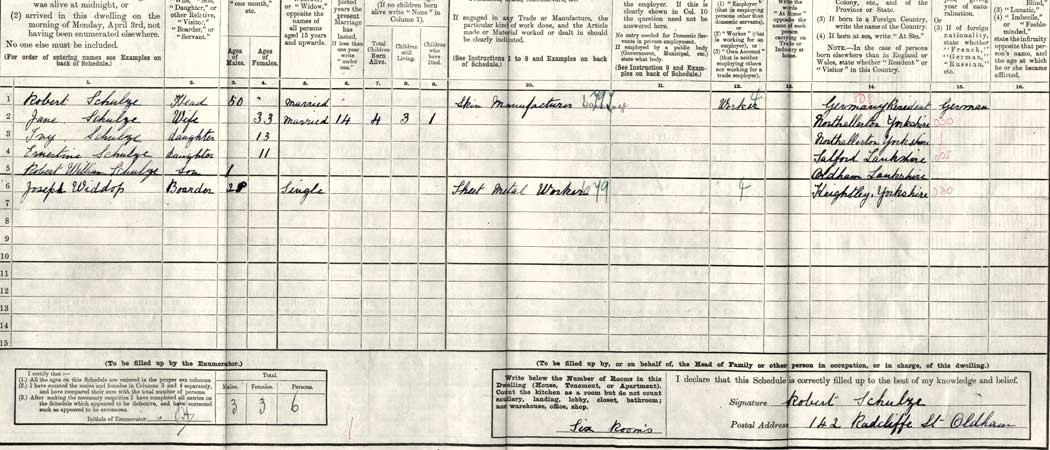 was alive at midnight, or
(2) arrived in this dwelling on the morning of Monday, April 3rd, not having been enumerated elsewhere.
No one else must be included.
(For order of entering names see Examples on back of Schedule.)
Wife, "Son,"
"Daughter," or other Relative,
"Visitor,"
"Boarder," or
"Servant."
"one month," etc.
Ages of Males.
Ages of Females.
or "Widow,"
opposite the names of all persons aged 15 years and upwards.
pleted years the present Marriage has lasted.
If less than one year write "under one."
(If no children born alive write "None" in Column 7).
Total Children Born Alive.
Children still Living.
Children who have Died.
If engaged in any Trade or Manufacture, the particular kind of work done, and the Article made or Material worked or dealt in should be clearly indicated.
(See Instructions 1 to 8 and Examples on back of Schedule.)
the employer. If this is clearly shown in Col. 10 the question need not be answered here.
No entry needed for Domestic Servants in private employment.
If employed by a public body (Government, Municipal, etc.) state what body.
(See Instruction 9 and Examples on back of Schedule.)
(1) "Employer" (that is employing persons other than domestic servants),
(2) "Worker" (that is working for an employer), or
(3) "Own Account" (that is neither employing others nor working for a trade employer).
Write the words "At Home" opposite the name of each person carrying on Trade or Industry at home.
Colony, etc., and of the Province or State.
(3) If born in a Foreign Country, write the name of the Country.
(4) If born at sea, write "At Sea."
NOTE.—In the case of persons born elsewhere than in England or Wales, state whether "Resident" or "Visitor" in this Country.
year of naturalisation. Or
(3) If of foreign nationality, state whether "French," "German," "Russian," etc.
Blind,"
(3) "Lunatic,"
(4) "Imbecile," or "Feeble-minded,"
state the infirmity opposite that person's name, and the age at which he or she became afflicted.
1. 2. 3. 4. 5. 6. 7. 8. 9. 10. 11. 12. 13. 14. 15. 16.
1 Robert Schulze Head 50 Married Skin Manufacturer Worker 4 Germany Resident German
2 Jane Schulze Wife 33 Married 14 4 3 1 Northallerton Yorkshire 030
3 Ivy Schulze daughter 13 Northallerton Yorkshire
4 Ernestine Schulze daughter 11 Salford Lankshire 005
5 Robert William Schulze son 1 Oldham Lankshire
6 Joseph Widdop Boarder 28 Single Sheet Metal Worker 4 Keightley, Yorkshire 030
7
8
9
10
11
12
13
14
15
(To be filled up by the Enumerator.)
I certify that:—
(1.) All the ages on this Schedule are entered in the proper sex columns.
(2.) I have counted the males and females in Columns 3 and 4 separately, and have compared their sum with the total number of persons.
(3.) After making the necessary enquiries I have completed all entries on the Schedule which appeared to be defective, and have corrected such as appeared to be erroneous.
Initials of Enumerator
Total.
Males. Females. Persons.
3 3 6
(To be filled up by, or on behalf of, the Head of Family or other person in occupation, or in charge, of this dwelling.)
Write below the Number of Rooms in this Dwelling (House, Tenement, or Apartment). Count the kitchen as a room but do not count scullery, landing, lobby, closet, bathroom; nor warehouse, office, shop.
Six Room's
I declare that this Schedule is correctly filled up to the best of my knowledge and belief.
Signature Robert Schulze
Postal Address 142 Radcliffe St Oldham